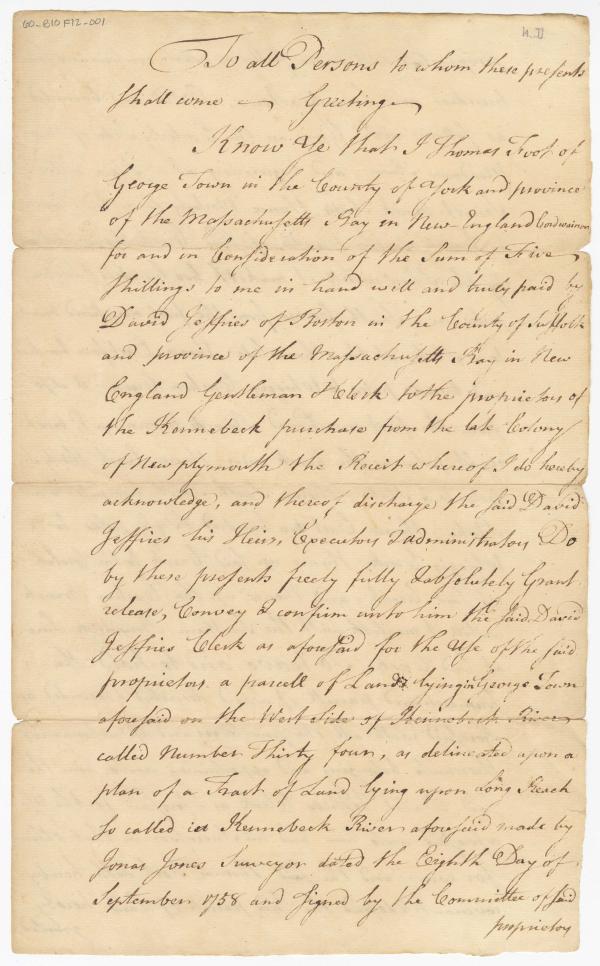 GO-B10F12-001
To all Persons to whom these presents
shall come — Greeting —
Know Ye that I Thomas Foot of
George Town in the County of York and province
of the Massachusetts Bay in New England Cordwainer
for and in Consideration of the Sum of Five
Shillings to me in hand well and truly paid by
David Jeffries of Boston in the County of Suffolk
and province of the Massachusetts Bay in New
England Gentleman & Clerk to the proprietors of
the Kennebeck purchase from the late Colony
of New plymouth the Receit whereof I do hereby
acknowledge, and thereof discharge the said David
Jeffries his Heirs, Executors & administrators Do
by these presents freely fully & absolutely Grant
release, Convey & confirm unto him the said David
Jeffries Clerk as aforesaid for the Use of the said
proprietors a parcell of Land lying in George Town
aforesaid on the West Side of Kennebeck River
called Number Thirty four, as delineated upon a
plan of a Tract of Land lying upon Long Reach
so called in Kennebeck River aforesaid made by
Jonas Jones Surveyor dated the Eighth Day of
September 1758 and signed by the Committee of said
proprietors